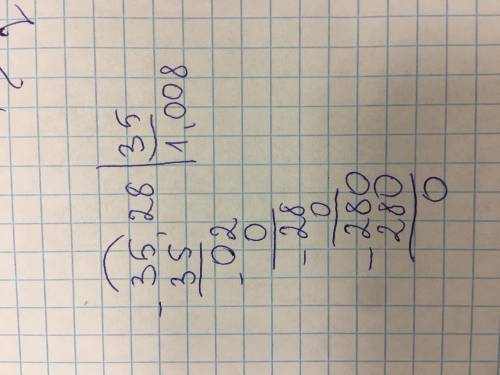 35,28 | 35
- 35 | 1,008
02
- 0
28
- 0
280
- 280
0